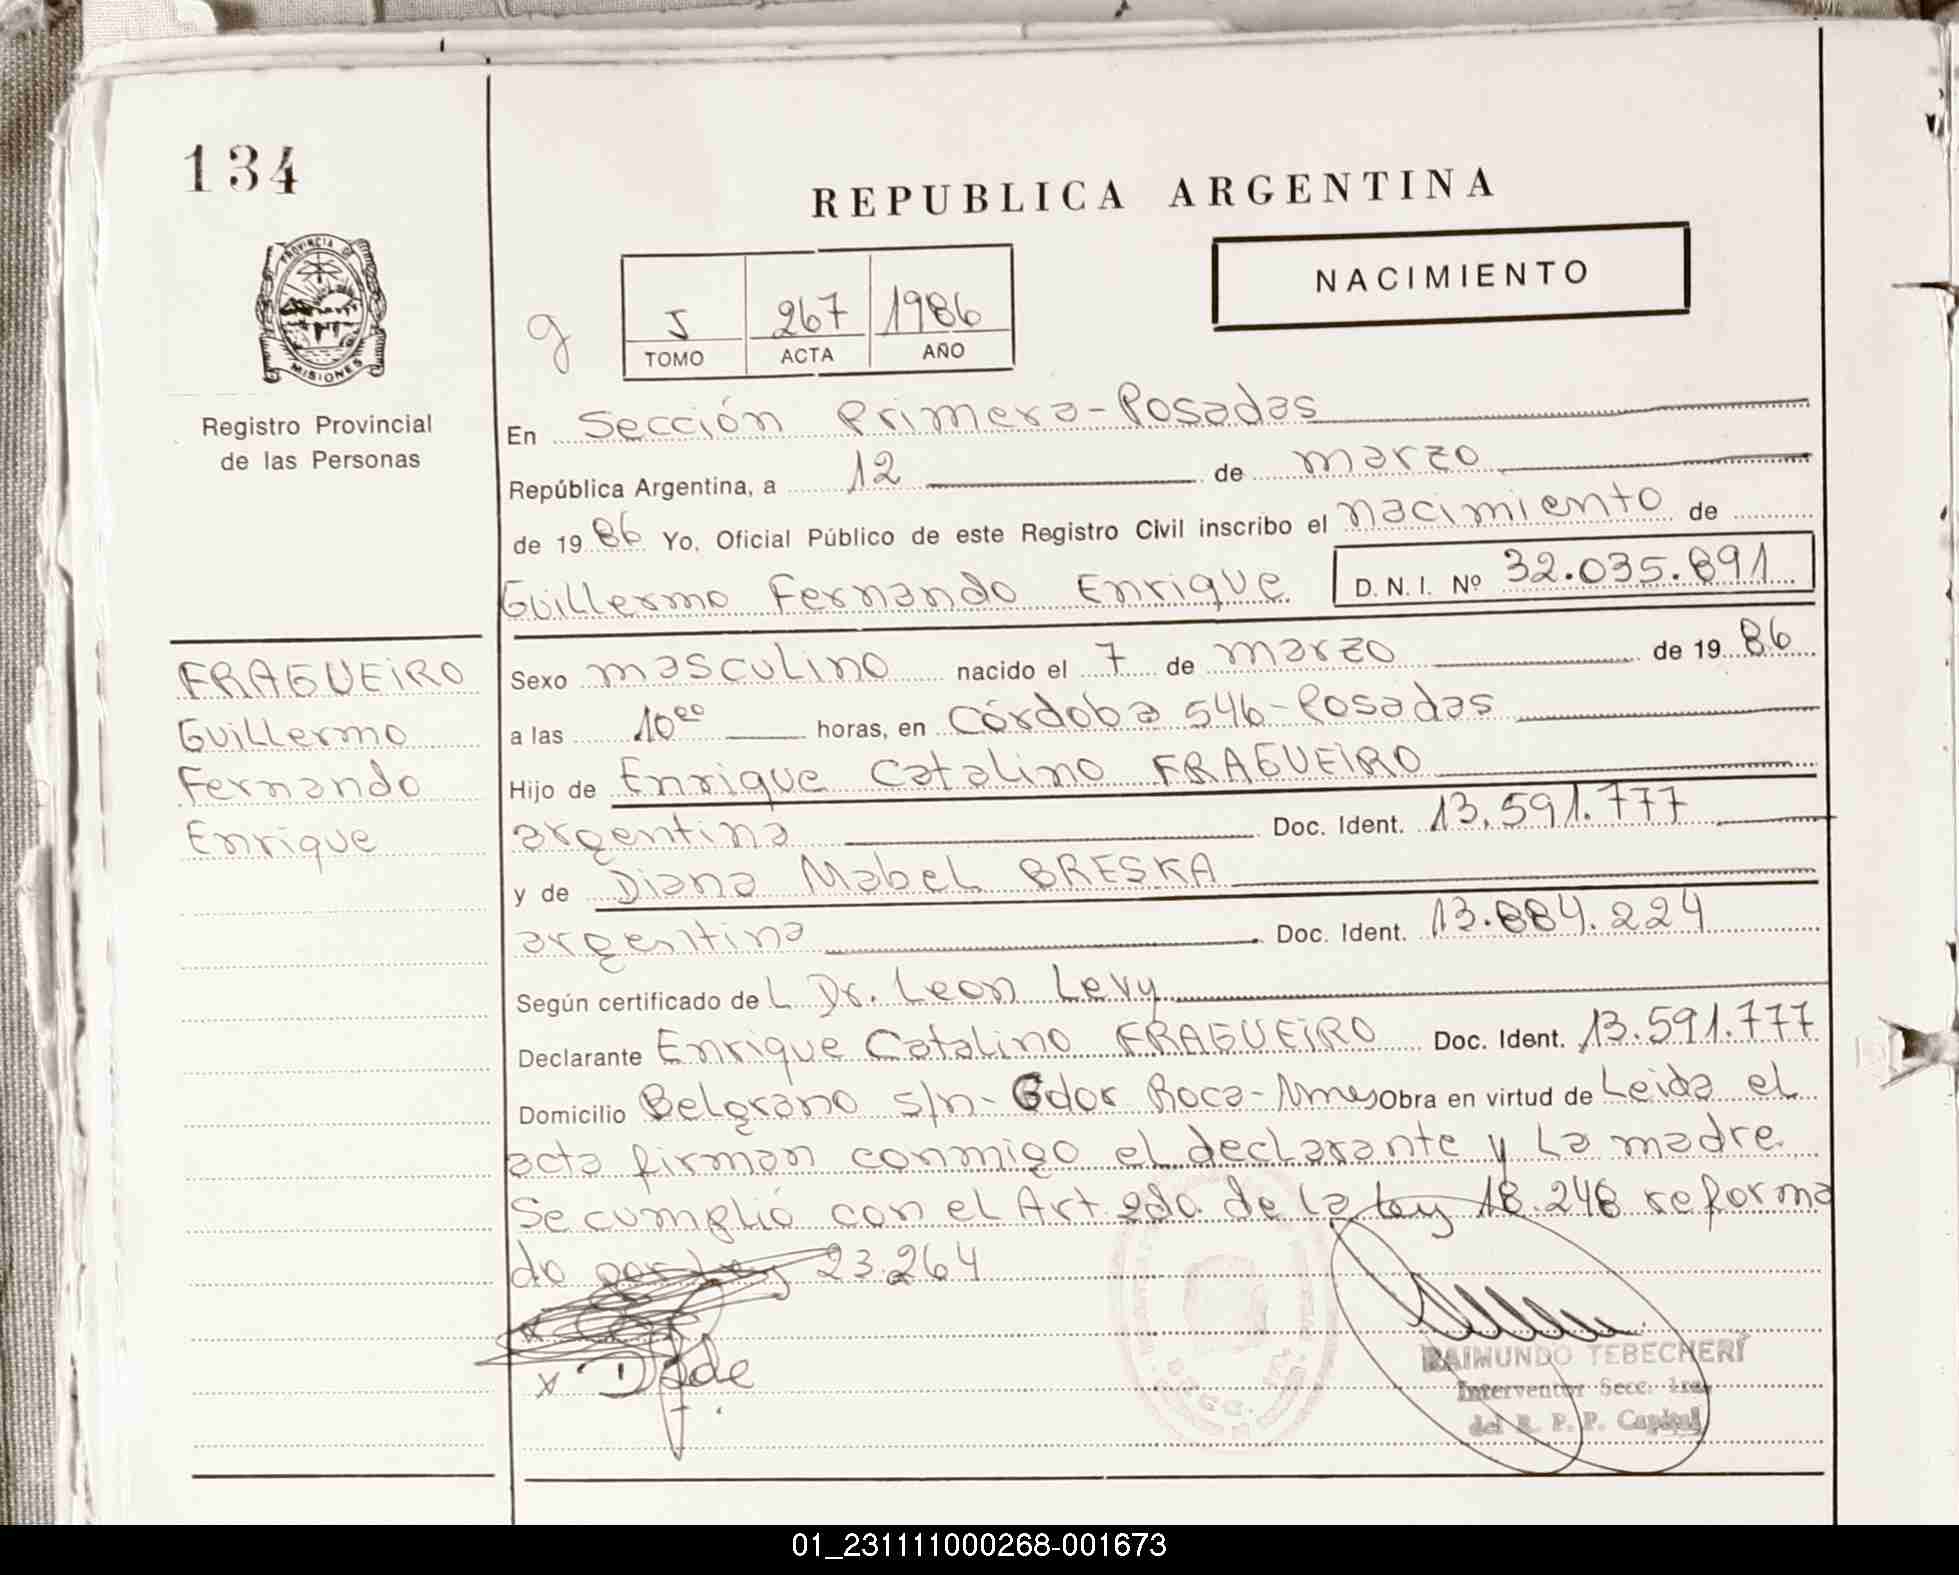 134
REPUBLICA ARGENTINA
PROVINCIA DE
MISIONES
Registro Provincial
de las Personas
NACIMIENTO
g
5 267 1986
TOMO ACTA AÑO
En Sección Primera-Posadas
República Argentina, a 12 de marzo
de 1986 Yo, Oficial Público de este Registro Civil inscribo el nacimiento de
Guillermo Fernando Enrique D. N. I. Nº 32.035.891
FRAGUEIRO
Guillermo
Fernando
Enrique
Sexo masculino nacido el 7 de marzo de 1986
a las 10⁰⁰ horas, en Córdoba 546-Posadas
Hijo de Enrique Catalino FRAGUEIRO
argentina Doc. Ident. 13.591.777
y de Diana Mabel BRESKA
argentina Doc. Ident. 13.884.224
Según certificado del Dr. Leon Levy
Declarante Enrique Catalino FRAGUEIRO Doc. Ident. 13.591.777
Domicilio Belgrano s/n- Gdor Roca-Mnes Obra en virtud de Leida el
acta firman conmigo el declarante y la madre.
Se cumplió con el Art 2do. de la Ley 18.248 reforma
do por Ley 23.264
RAIMUNDO TEBECHERI
Interventor Secc. 1ra.
del R. P. P. Capital
01_231111000268-001673